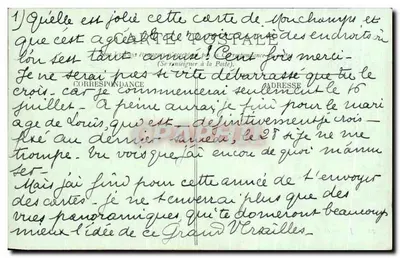 1) Qu'elle est jolie cette carte de Mouchamps et
que c'est agréable de revoir ainsi des endroits où
l'on s'est tant amusé! Cent fois merci.
CARTE POSTALE
Je ne serai pas si vite débarrassé que tu le
CORRESPONDANCE
ADRESSE
crois car je commencerai seulement le 16
juillet. A peine aurai-je fini pour le mari
age de Louis, qui est définitivement je crois
fixé au dernier samedi, le 28 si je ne me
trompe. Tu vois que j'ai encore de quoi m'amu
ser.
Mais j'ai fini pour cette année de t'envoyer
des cartes. Je ne trouverai plus que des
vues panoramiques qui te donneront beaucoup
mieux l'idée de ce Grand Versailles.